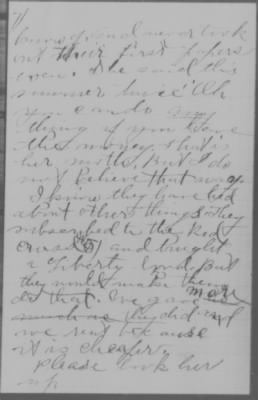 and never took
out their first papers
even. She said this
summer twice "Oh
you can do any
thing if you have
the money. That is
her motto. But I do
not believe that way.
I know they have lied
about other things. They
subscribed to the Red
Cross ($5) and bought
a Liberty bond, but
they would make them
do that. We gave more
much as they did and
we rent because
it is cheaper.
Please look her
up.